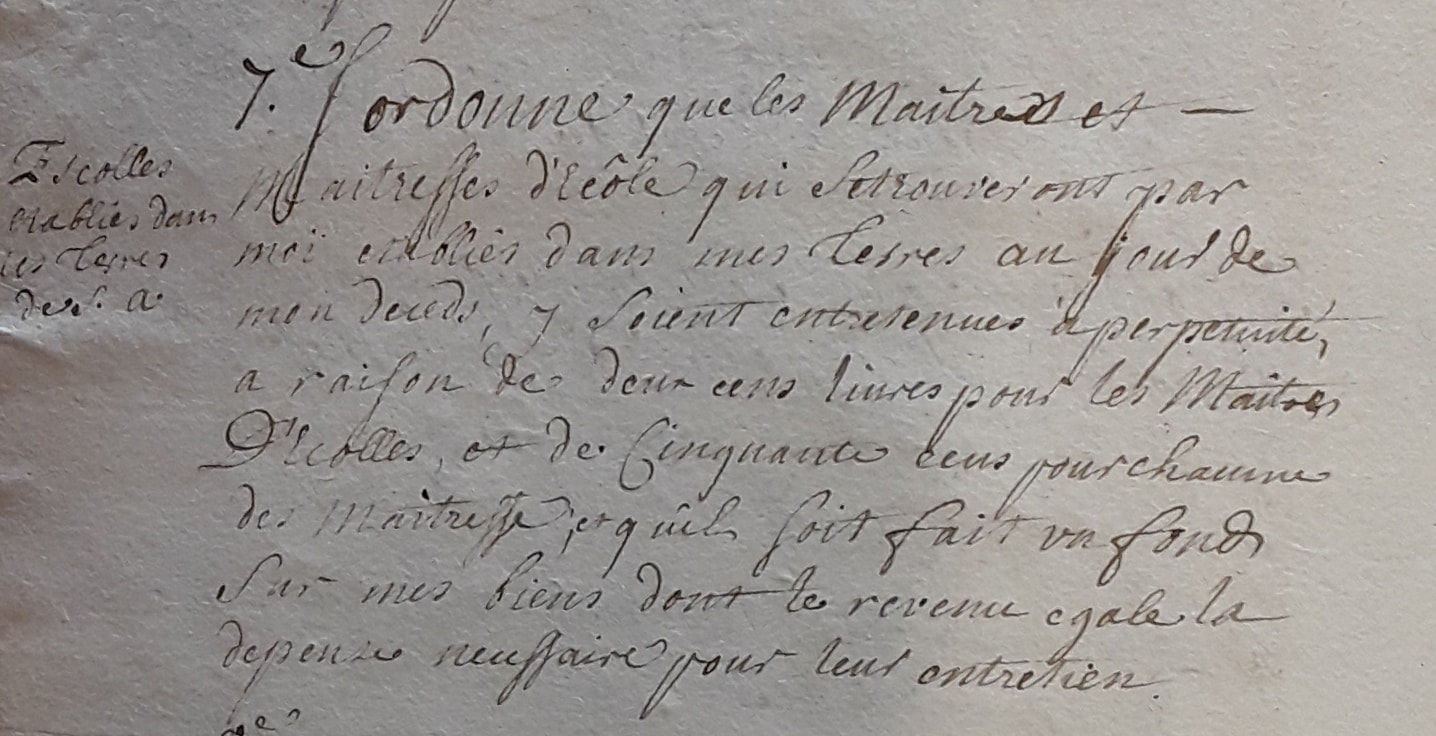 7.e J'ordonne que les Maîtres et —
Maitresses d'Ecôle qui se trouveront par
moi etabliës dans mes terres au jour de
mon deceds, y soient entretenues à perpetuité,
a raison de deux cens livres pour les Maîtres
D'Ecolles, et de Cinquante cens pour chacune
des maitresse, et qu'il soit fait un fond
sur mes biens dont le revenu egale la
depense necessaire pour leur entretien.
Escolles
etablies dans
les terres
de